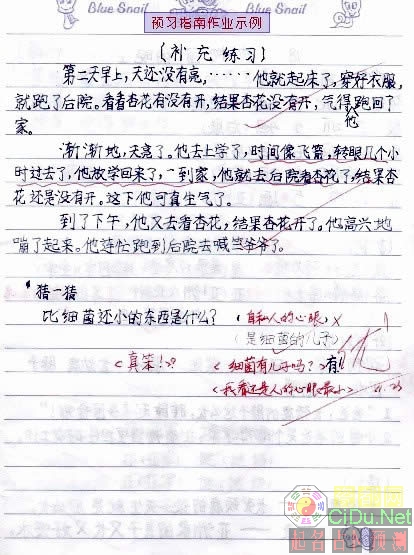 Blue Snail
Blue Snail
预习指南作业示例
（补充练习）
第二天早上，天还没有亮，……他就起床了，穿好衣服，
就跑了后院。看看杏花有没有开，结果杏花没有开，气得跑回了
他
家。
渐渐地，天亮了。他去上学了，时间像飞箭，转眼几个小
时过去了，他放学回来了，一到家，他就去后院看杏花了，结果杏
花还是没有开。这下他可真生气了。
到了下午，他又去看杏花，结果杏花开了。他高兴地
蹦了起来。他连忙跑到后院去喊爷爷了。
"猜一猜
比细菌还小的东西是什么？（自私人的心眼）×
（是细菌的儿子）
<真笨！>？ <细菌有儿子吗？>有！！ 优
<我看还是人的心眼最小>
CiDu.Net
起名吉凶预测